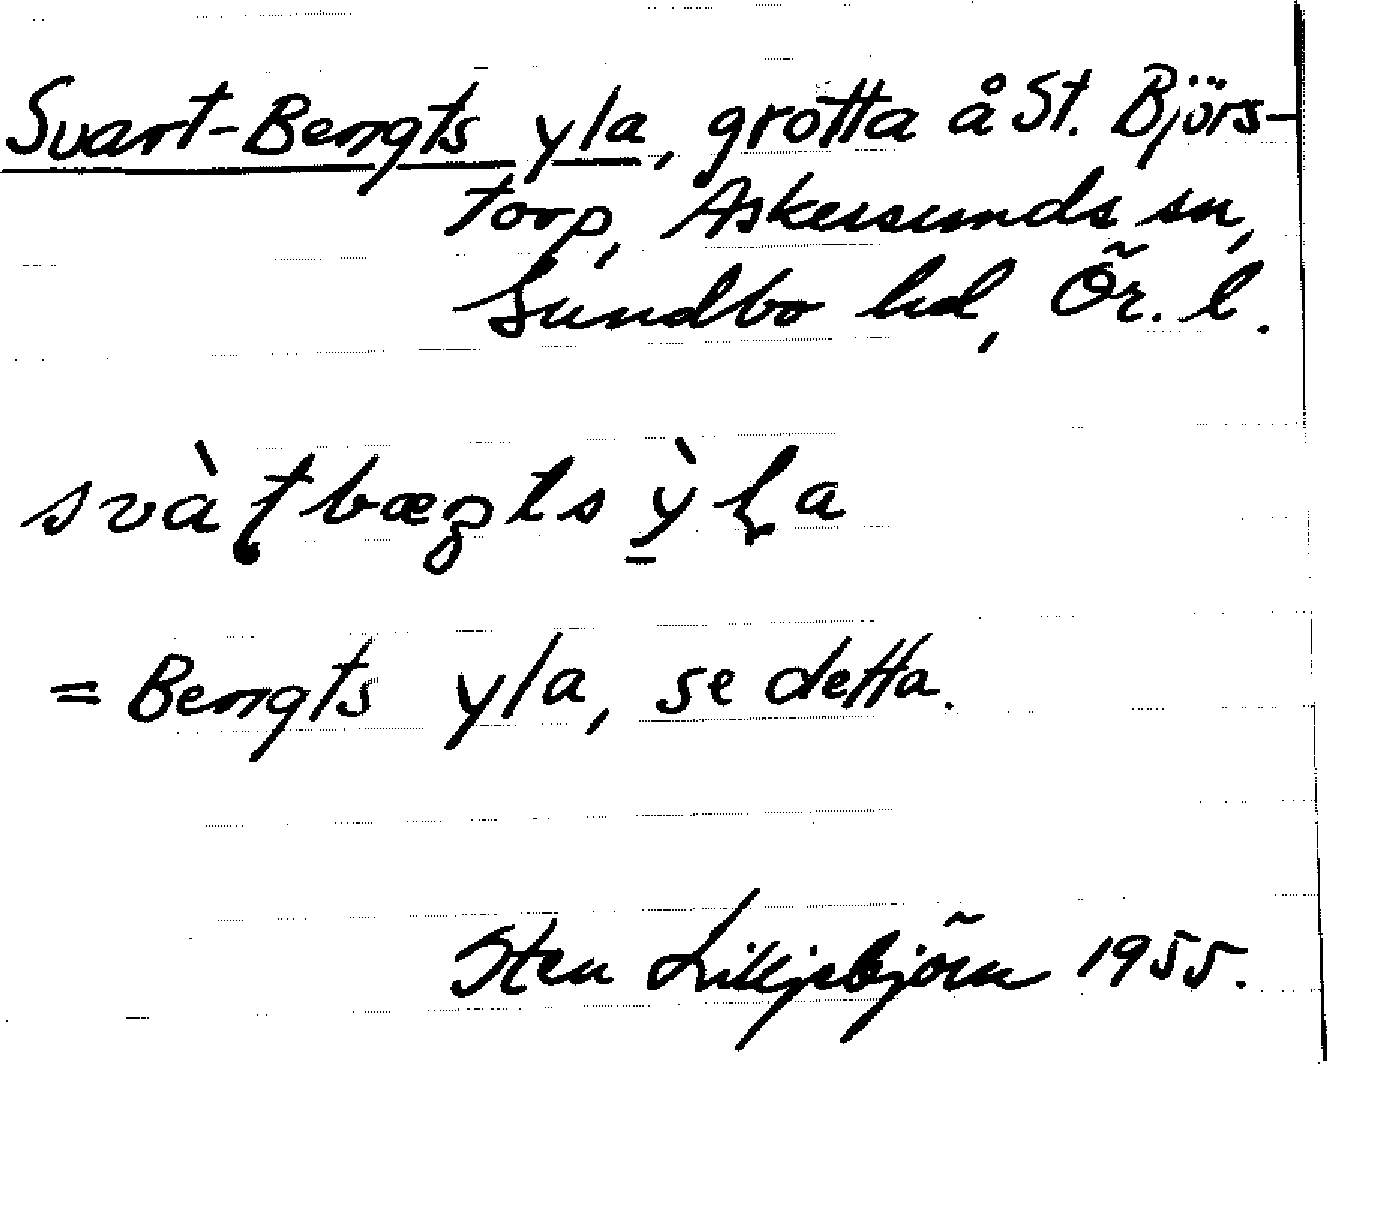 Svart-Bengts yla, grotta å St. Björs-
torp, Askersunds sn,
Sundbo hd, Ör. l.
svàʈbæŋts ỳ̠ɽa
= Bengts yla, se detta.
Sten Liljebjörn 1955.